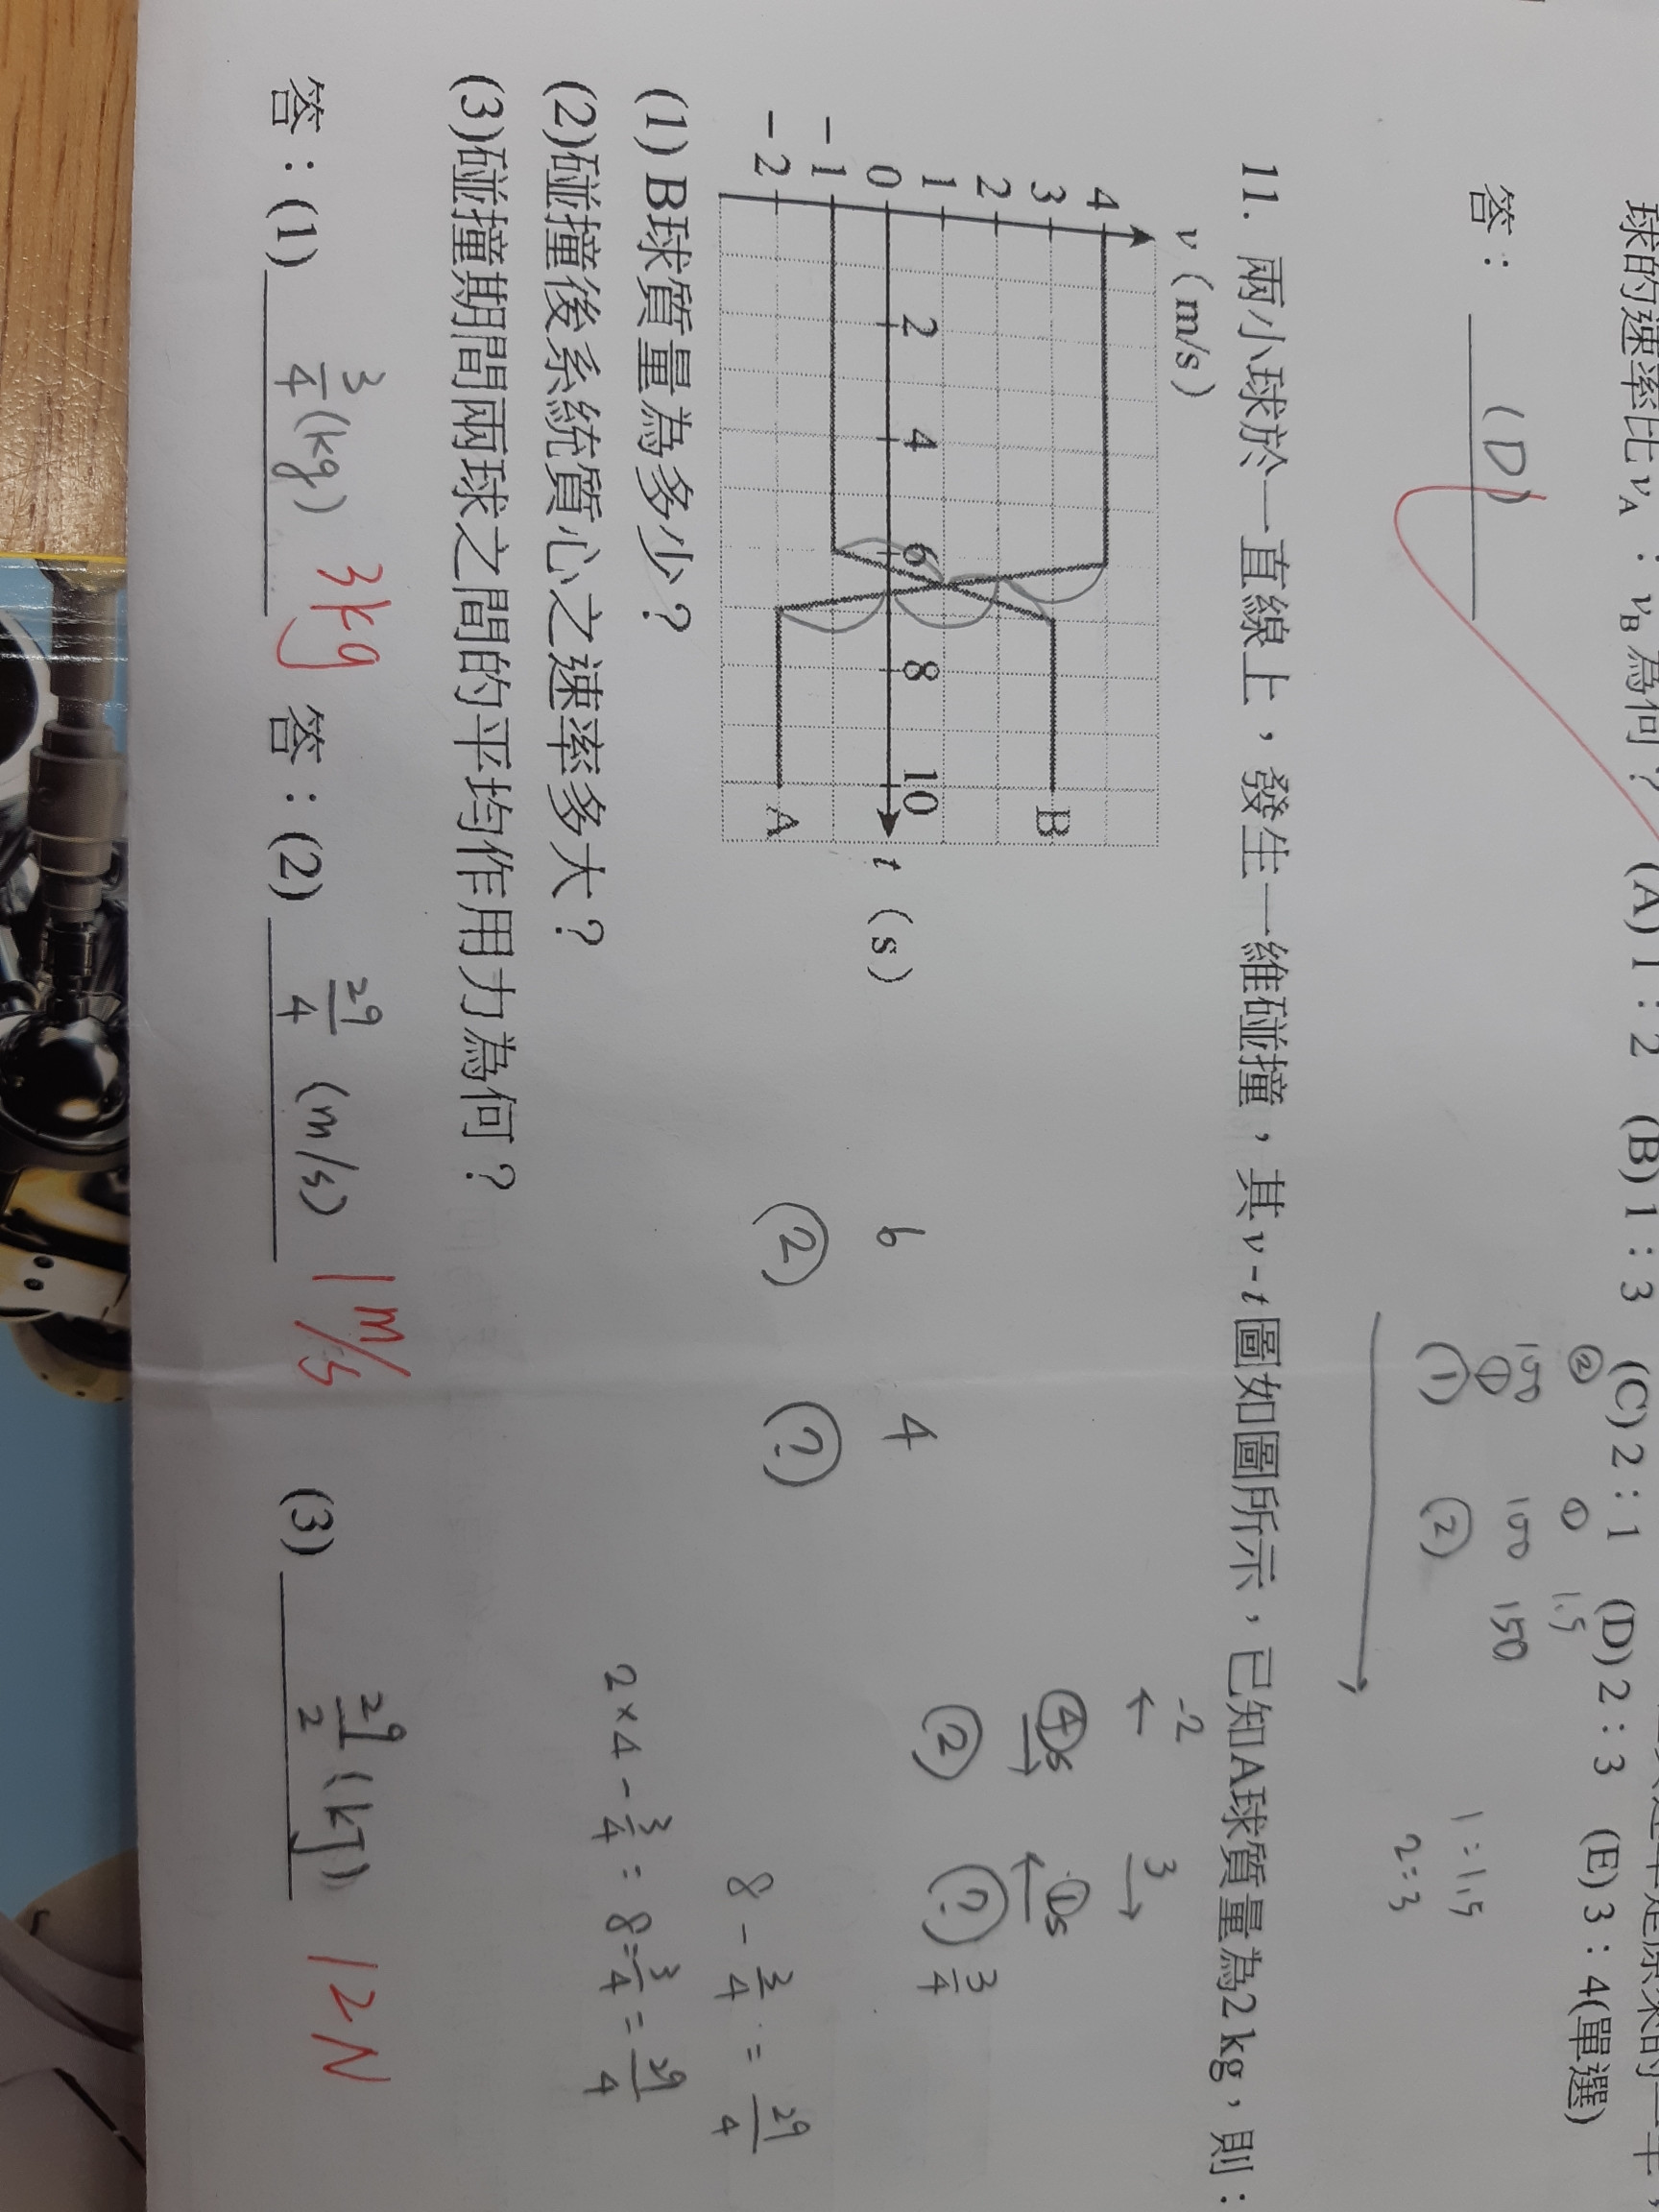 球的速率比vA：vB為何？ (A) 1：2 (B) 1：3 (C) 2：1 (D) 2：3 (E) 3：4(單選)
② ① 1.5
100 100 150
① (1) (2)
1:1.5
2:3
答： (D)
11. 兩小球於一直線上，發生一維碰撞，其v-t圖如圖所示，已知A球質量為2 kg，則：
v (m/s)
4
3
2
1
0
-1
-2
2 4 6 8 10
t (s)
B
A
-2 3
④s ①s
(2) (?) 3/4
6 4
(2) (?)
8 - 3/4 = 29/4
2×4 - 3/4 = 8 - 3/4 = 29/4
(1) B球質量為多少？
(2)碰撞後系統質心之速率多大？
(3)碰撞期間兩球之間的平均作用力為何？
答：(1) 3/4 (kg) 3kg 答：(2) 29/4 (m/s) 1 m/s (3) 29/2 (kJ) 12N